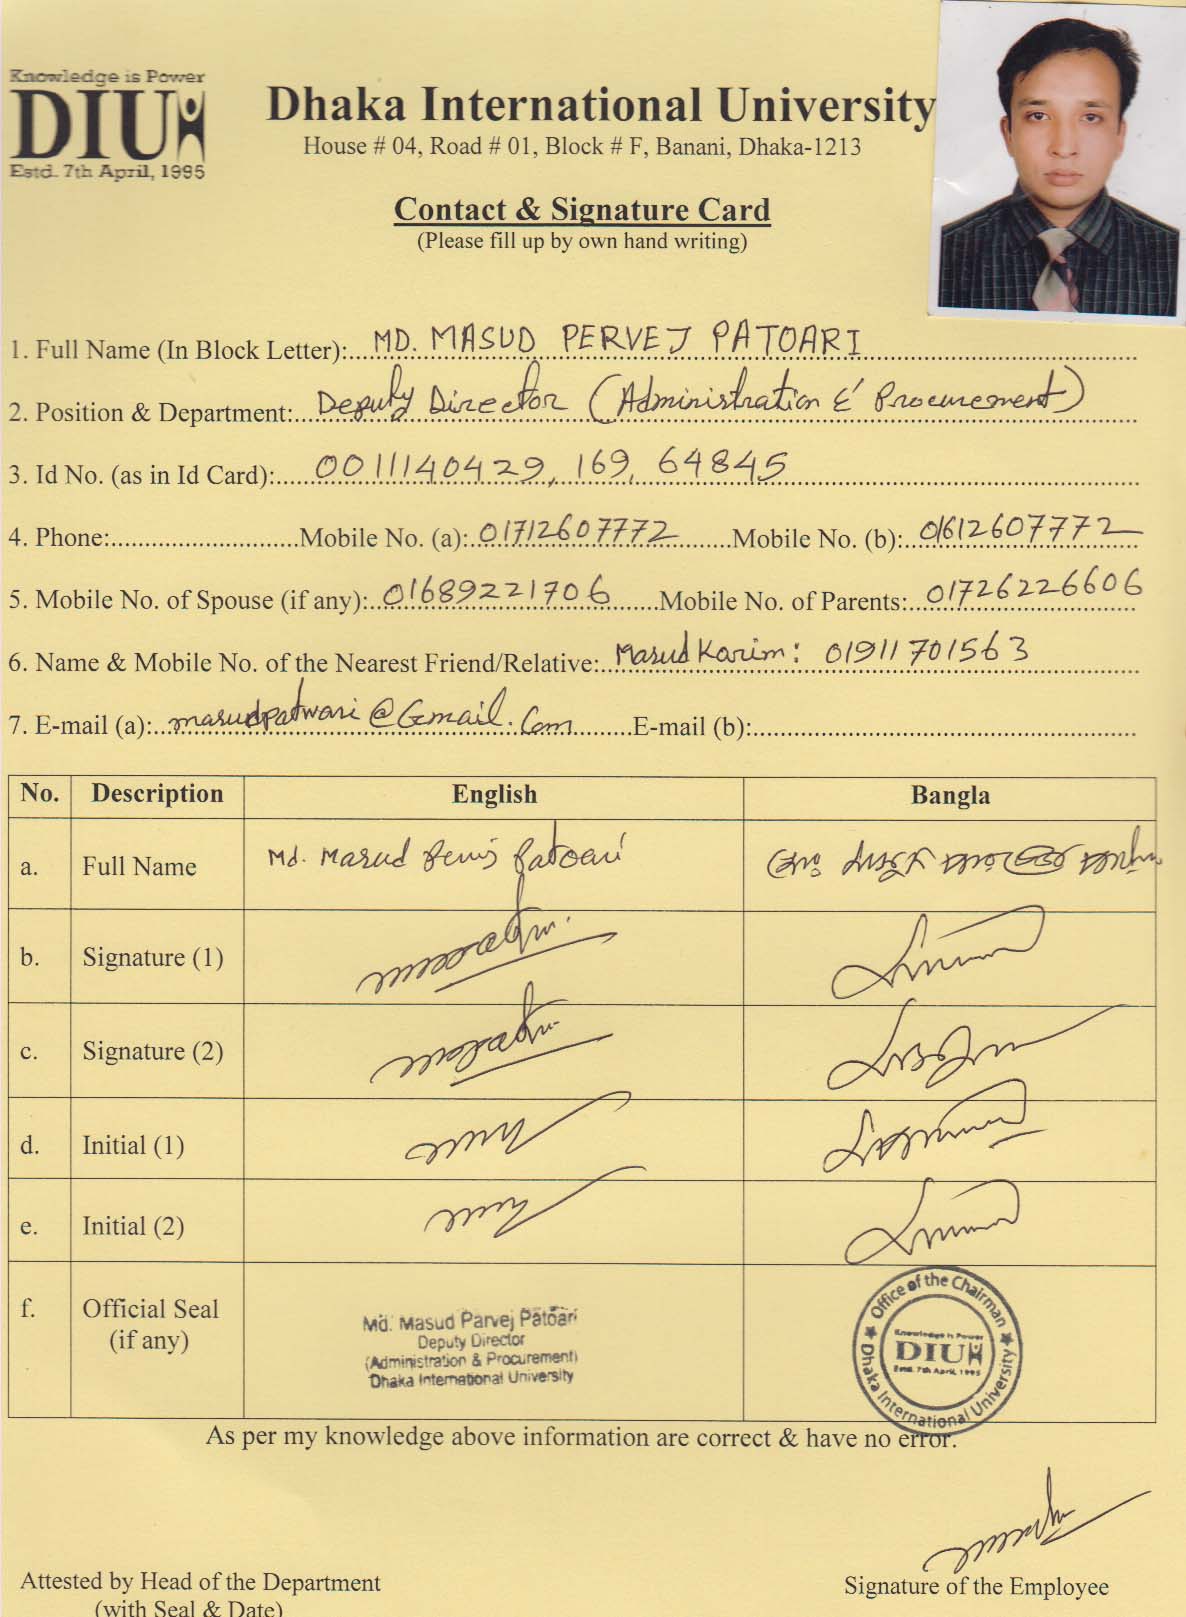 Knowledge is Power
DIU
Estd. 7th April, 1995
Dhaka International University
House # 04, Road # 01, Block # F, Banani, Dhaka-1213
Contact & Signature Card
(Please fill up by own hand writing)
1. Full Name (In Block Letter): MD. MASUD PERVEJ PATOARI
2. Position & Department: Deputy Director (Administration & Procurement)
3. Id No. (as in Id Card): 0011140429, 169, 64845
4. Phone: Mobile No. (a): 01712607772 Mobile No. (b): 01612607772
5. Mobile No. of Spouse (if any): 01689221706 Mobile No. of Parents: 01726226606
6. Name & Mobile No. of the Nearest Friend/Relative: Masud Karim: 01911701563
7. E-mail (a): masudpatwari@Gmail.Com E-mail (b):
No. Description English Bangla
a. Full Name Md. Masud Patoari মোঃ মাসুদ
b. Signature (1)
c. Signature (2)
d. Initial (1)
e. Initial (2)
f. Official Seal
(if any)
Md. Masud Parvej Patoari
Deputy Director
(Administration & Procurement)
Dhaka International University
Office of the Chairman
Knowledge is Power
DIU
Estd. 7th April, 1995
Dhaka International University
As per my knowledge above information are correct & have no error.
Attested by Head of the Department
(with Seal & Date)
Signature of the Employee